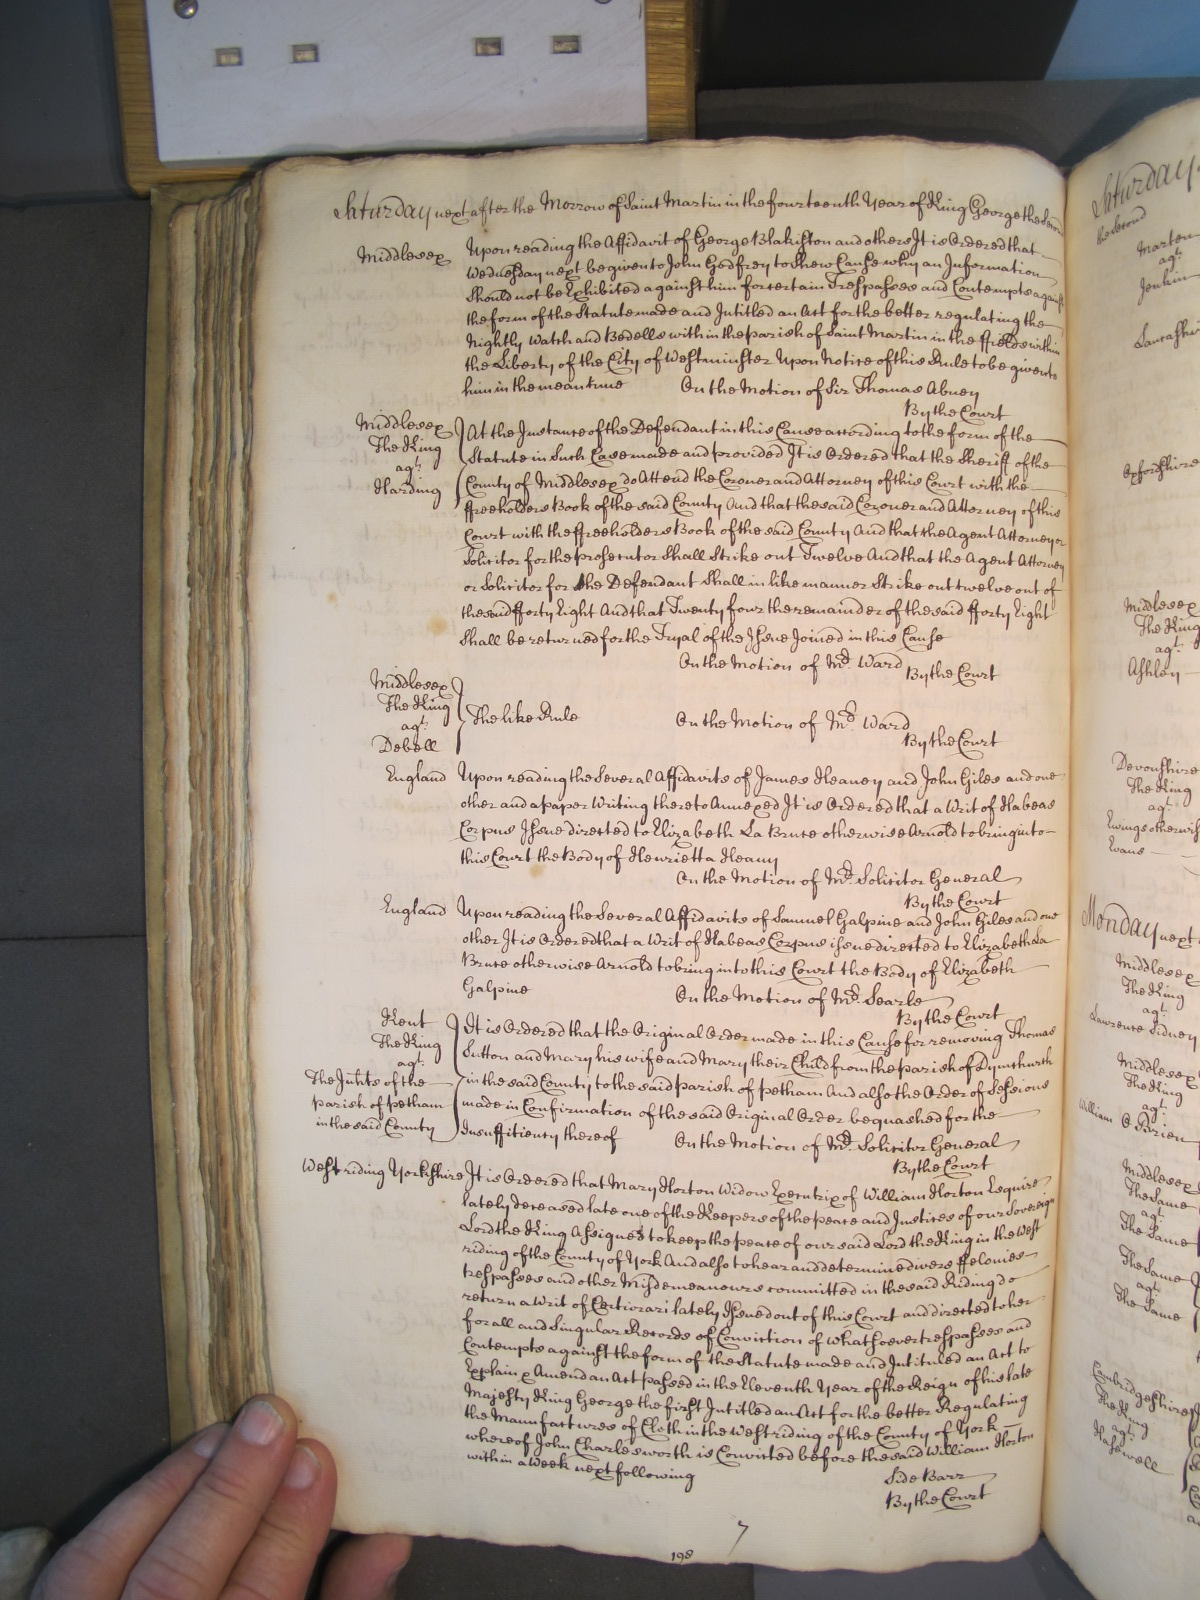 Saturday next after the Morrow of Saint Martin in the fourteenth Year of King George the Second
Middlesex Upon reading the Affidavit of George Blakiston and others It is Ordered that
Wednesday next be given to John Godfrey to Shew Cause why an Information
Should not be Exhibited against him for certain Trespasses and Contempts against
the form of the Statute made and Intitled an Act for the better regulating the
Nightly Watch and Bedells within the parish of Saint Martin in the ffields within
the Liberty of the City of Westminster Upon Notice of this Rule to be given to
him in the mean time On the Motion of Sir Thomas Abney
By the Court
Middlesex
The King
agt.
Harding
At the Instance of the Defendant in this Cause according to the form of the
Statute in Such Case made and provided It is Ordered that the Sheriff of the
County of Middlesex do Attend the Coroner and Attorney of this Court with the
ffreeholders Book of the said County And that the said Coroner and Attorney of this
Court with the ffreeholders Book of the said County And that the Agent Attorney or
Solicitor for the prosecutor Shall Strike out Twelve And that the Agent Attorney
or Solicitor for the Defendant Shall in like manner Strike out twelve out of
the said fforty Eight And that Twenty four the remainder of the said fforty Eight
Shall be returned for the Tryal of the Issue Joined in this Cause
On the Motion of Mr. Ward
By the Court
Middlesex
The King
agt.
Debell
The like Rule On the Motion of Mr. Ward
By the Court
England Upon reading the Several Affidavits of James Heaney and John Giles and one
other and a paper Writing thereto Annexed It is Ordered that a Writ of Habeas
Corpus Issue directed to Elizabeth La Bruse otherwise Arnold to bring into
this Court the Body of Henrietta Heany
On the Motion of Mr. Solicitor General
By the Court
England Upon reading the Several Affidavits of Samuel Galpine and John Giles and one
other It is Ordered that a Writ of Habeas Corpus issue directed to Elizabeth La
Bruse otherwise Arnold to bring into this Court the Body of Elizabeth
Galpine On the Motion of Mr. Searle
By the Court
Kent
The King
agt.
The Inhts of the
parish of Petham
in the said County
It is Ordered that the Original Order made in this Cause for removing Thomas
Sutton and Mary his wife and Mary their Child from the parish of Dymchurch
in the said County to the said parish of petham And also the Order of Sessions
made in Confirmation of the said Original Order be quashed for the
Insufficiency thereof On the Motion of Mr. Solicitor General
By the Court
West riding Yorkshire It is Ordered that Mary Horton Widow Executrix of William Horton Esquire
lately deceased late one of the Keepers of the peace and Justices of our Sovereign
Lord the King Assigned to keep the peace of our said Lord the King in the West
riding of the County of York And also to hear and determine divers ffelonies
trespasses and other Misdemeanours committed in the said Riding do
return a Writ of Certiorari lately Issued out of this Court and directed to her
for all and Singular Records of Conviction of whatsoever trespasses and
Contempts against the form of the Statute made and Intituled an Act to
Explain & Amend an Act passed in the Eleventh Year of the Reign of his late
Majesty King George the first Intitled an Act for the better Regulating
the Manufactures of Cloth in the West riding of the County of York
whereof John Charlesworth is Convicted before the said William Horton
within a Week next following
Side Barr
By the Court
7
198
Saturday
the Second
agt.
Jenkin
Oxfordshire
Middlesex
The King
agt.
Ashley
Devonshire
The King
agt.
Ewings otherwis
Evans
Monday next
Middlesex
The King
agt.
Lawrence Sidney
Middlesex
The King
agt.
William O Brien
Middlesex
The Same
agt.
The Same
The Same
agt.
The Same
Cambridgeshire
The King
agt.
Haswell